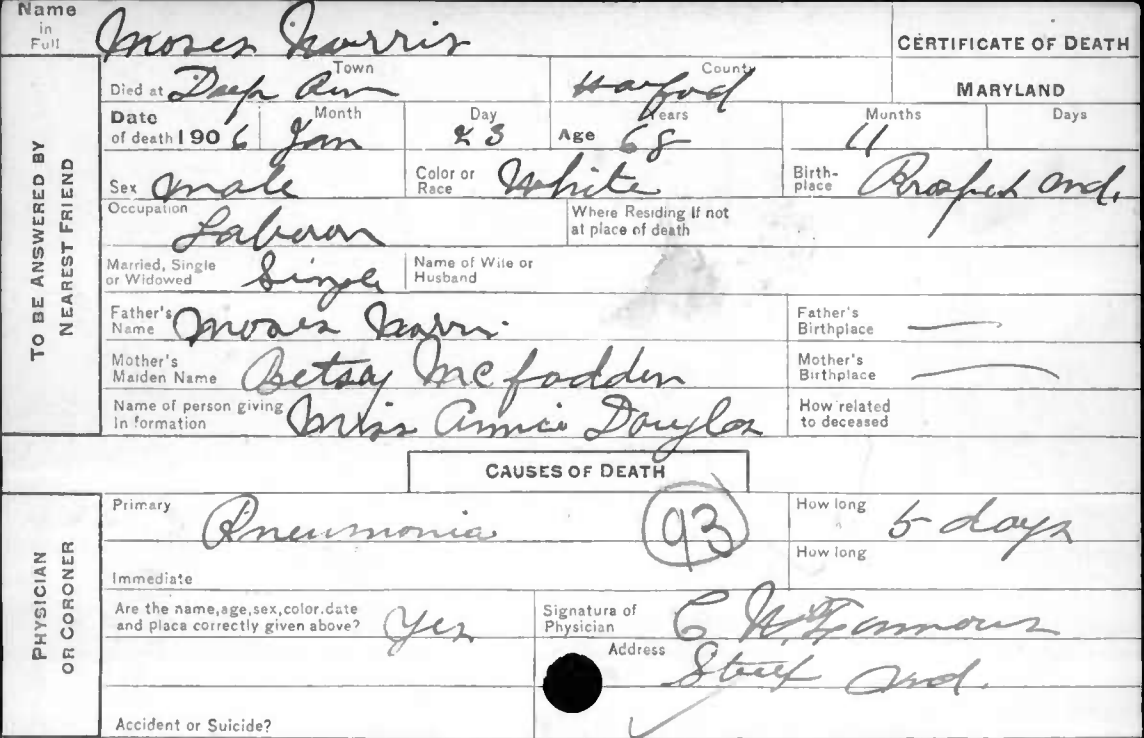 Name in Full Moses Norris
CERTIFICATE OF DEATH
TO BE ANSWERED BY NEAREST FRIEND
Died at Deep Run Town Harford County MARYLAND
Date of death 1906 Month Jan Day 23 Age Years 68 Months 11 Days
Sex Male Color or Race White Birthplace Prospect Md.
Occupation Labour Where Residing If not at place of death
Married, Single or Widowed Single Name of Wife or Husband
Father's Name Moses Norris Father's Birthplace —
Mother's Maiden Name Betsay McFadden Mother's Birthplace —
Name of person giving In formation Miss Annie Douglas How related to deceased
CAUSES OF DEATH
PHYSICIAN OR CORONER
Primary Pneumonia 93 How long 5 days
Immediate How long
Are the name, age, sex, color, date and place correctly given above? Yes Signature of Physician C
Address Street Md.
Accident or Suicide?